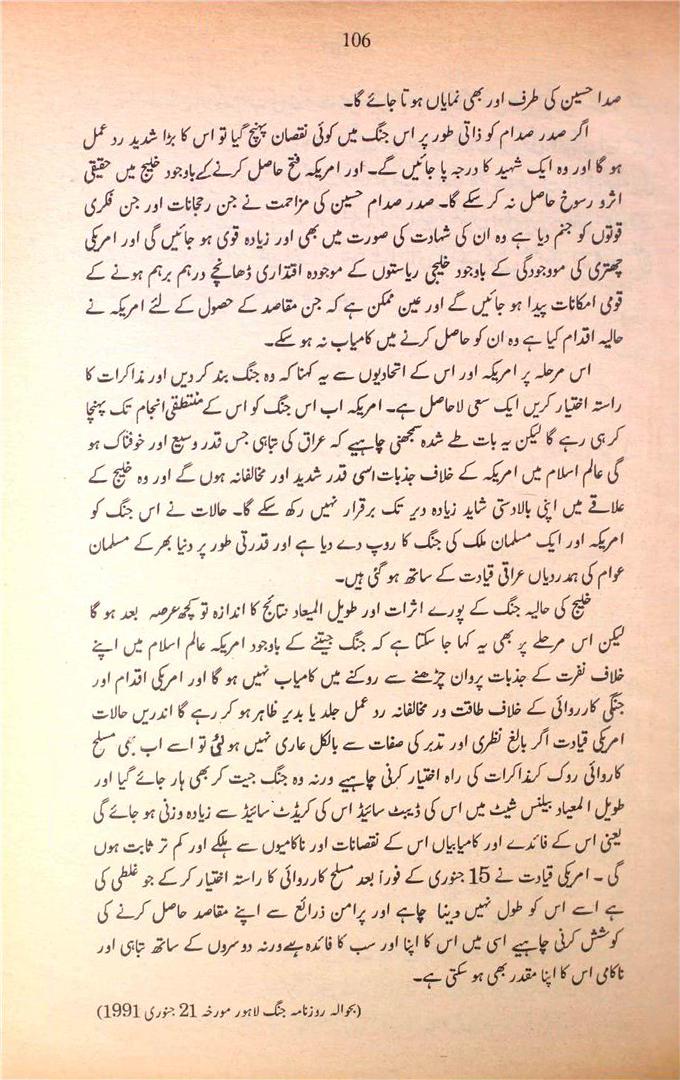 106
صدا حسین کی طرف اور بھی نمایاں ہو تا جائے گا۔
اگر صدر صدام کو ذاتی طور پر اس جنگ میں کوئی نقصان پہنچ گیا تو اس کا بڑا شدید رد عمل
ہو گا اور وہ ایک شہید کا درجہ پا جائیں گے۔ اور امریکہ فتح حاصل کرنے کے باوجود خلیج میں حقیقی
اثرو رسوخ حاصل نہ کر سکے گا۔ صدر صدام حسین کی مزاحمت نے جن رجحانات اور جن فکری
قوتوں کو جنم دیا ہے وہ ان کی شہادت کی صورت میں بھی اور زیادہ قوی ہو جائیں گی اور امریکی
چھتری کی مووجودگی کے باوجود خلیجی ریاستوں کے موجودہ اقتداری ڈھانچے درہم برہم ہونے کے
قومی امکانات پیدا ہو جائیں گے اور عین ممکن ہے کہ جن مقاصد کے حصول کے لئے امریکہ نے
حالیہ اقدام کیا ہے وہ ان کو حاصل کرنے میں کامیاب نہ ہو سکے۔
اس مرحلہ پر امریکہ اور اس کے اتحادیوں سے یہ کہنا کہ وہ جنگ بند کر دیں اور مذاکرات کا
راستہ اختیار کریں ایک سعی لاحاصل ہے۔ امریکہ اب اس جنگ کو اس کے منتطقی انجام تک پہنچا
کر ہی رہے گا لیکن یہ بات طے شدہ سمجھنی چاہیے کہ عراق کی تباہی جس قدر وسیع اور خوفناک ہو
گی عالم اسلام میں امریکہ کے خلاف جذبات اسی قدر شدید اور مخالفانہ ہوں گے اور وہ خلیج کے
علاقے میں اپنی بالادستی شاید زیادہ دیر تک برقرار نہیں رکھ سکے گا۔ حالات نے اس جنگ کو
امریکہ اور ایک مسلمان ملک کی جنگ کا روپ دے دیا ہے اور قدرتی طور پر دنیا بھر کے مسلمان
عوام کی ہمدردیاں عراقی قیادت کے ساتھ ہو گئی ہیں۔
خلیج کی حالیہ جنگ کے پورے اثرات اور طویل المیعاد نتائج کا اندازہ تو کچھ عرصہ بعد ہو گا
لیکن اس مرحلے پر بھی یہ کہا جا سکتا ہے کہ جنگ جیتنے کے باوجود امریکہ عالم اسلام میں اپنے
خلاف نفرت کے جذبات پروان چڑھنے سے روکنے میں کامیاب نہیں ہو گا اور امریکی اقدام اور
جنگی کارروائی کے خلاف طاقت ور مخالفانہ رد عمل جلد یا بدیر ظاہر ہو کر رہے گا اندریں حالات
امریکی قیادت اگر بالغ نظری اور تدبر کی صفات سے بالکل عاری نہیں ہو گئی تو اسے اب بھی مسلح
کاروائی روک کر مذاکرات کی راہ اختیار کرنی چاہیے ورنہ وہ جنگ جیت کر بھی ہار جائے گیا اور
طویل المعیاد بیلنس شیٹ میں اس کی ڈیبٹ سائیڈ اس کی کریڈٹ سائیڈ سے زیادہ وزنی ہو جائے گی
یعنی اس کے فائدے اور کامیابیاں اس کے نقصانات اور ناکامیوں سے ہلکے اور کم تر ثابت ہوں
گی ۔ امریکی قیادت نے 15 جنوری کے فوراً بعد مسلح کارروائی کا راستہ اختیار کر کے جو غلطی کی
ہے اسے اس کو طول نہیں دینا چاہے اور پرامن ذرائع سے اپنے مقاصد حاصل کرنے کی
کوشش کرنی چاہیے اسی میں اس کا اپنا اور سب کا فائدہ ہے ورنہ دوسروں کے ساتھ تباہی اور
ناکامی اس کا اپنا مقدر بھی ہو سکتی ہے۔
(بحوالہ روزنامہ جنگ لاہور مورخہ 21 جنوری 1991)